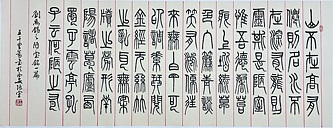 山不在高有
仙則名水不
在深有龍則
靈斯是陋室
惟吾德馨苔
痕上階綠草
色入簾青談
笑有鴻儒往
來無白丁可
以調素琴閱
金經無絲竹
之亂耳無案
牘之勞形南
陽諸葛廬西
蜀子雲亭孔
子云何陋之有
劉禹錫之陋室銘一篇